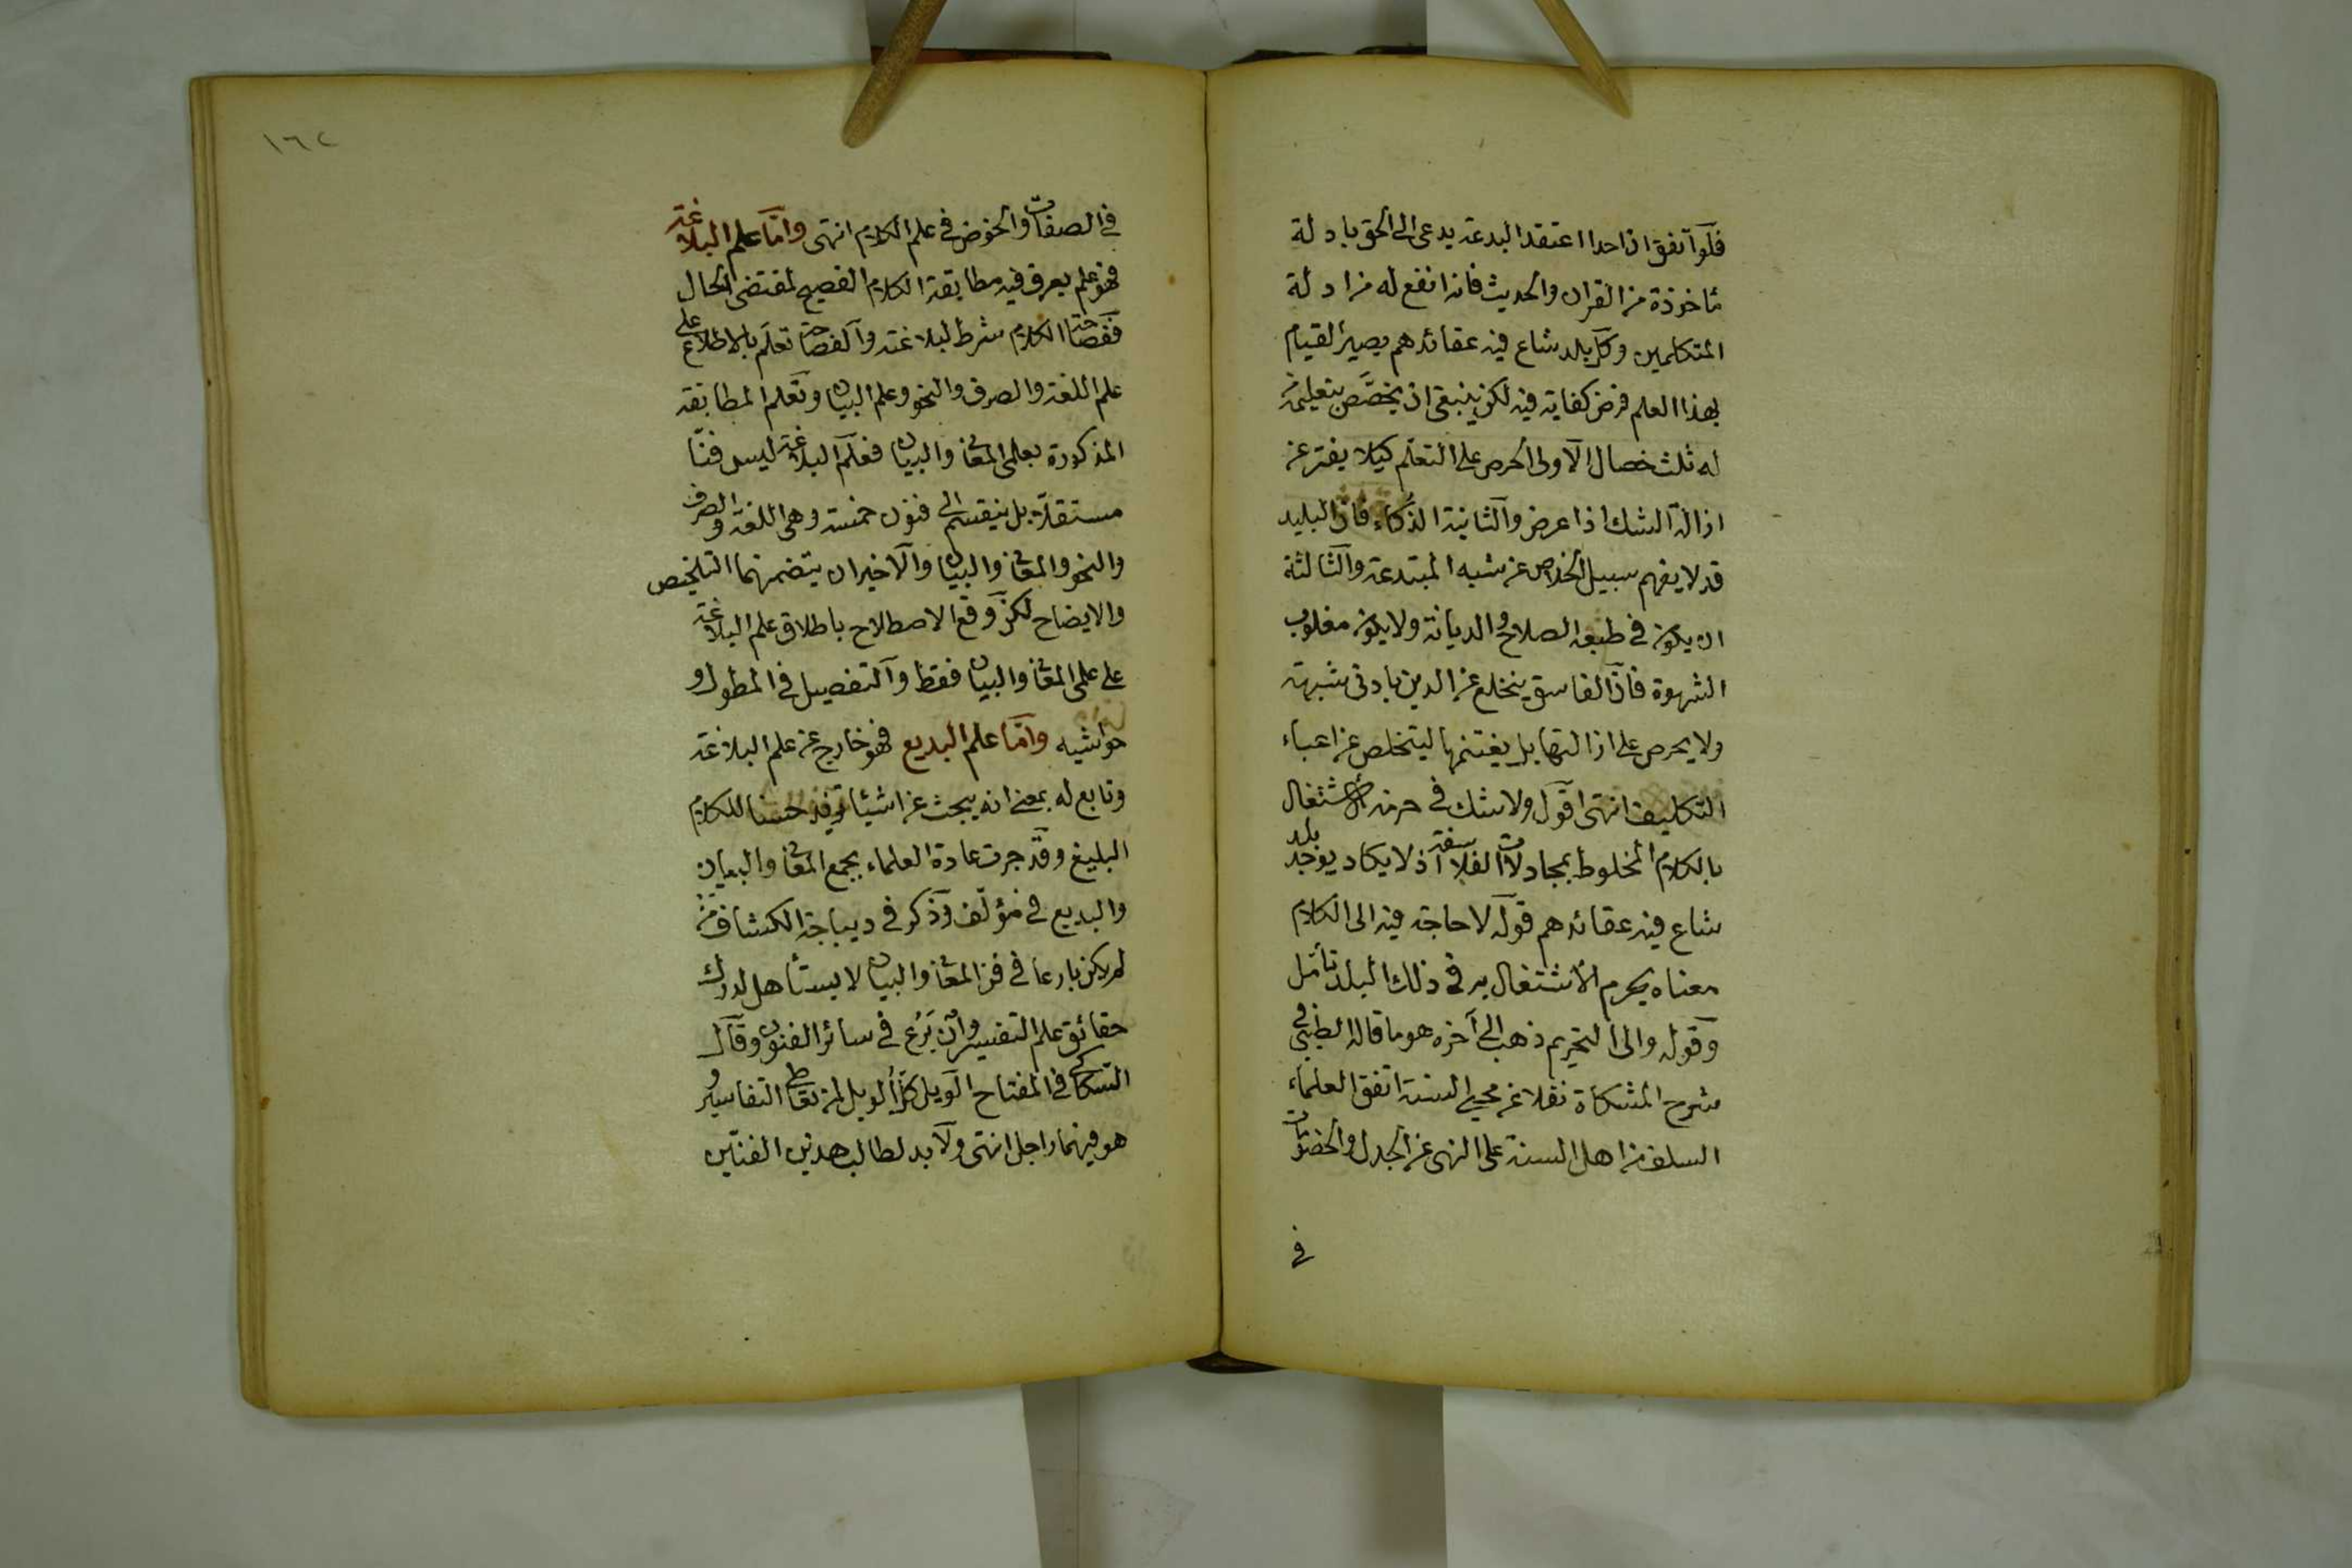 فلو اتفق ان احدا اعتقد البدعة يدعى الى الحق بادلة
مأخوذة من القران والحديث فانه انفع له من ادلة
المتكلمين وكل بلد شاع فيه عقائدهم يصير القيام
بهذا العلم فرض كفاية فيه لكن ينبغى ان يخصّص بتعليمه من
له ثلث خصال الاولى الحرص على التعلّم كيلا يفتر عن
ازالة الشك اذا عرض والثانية الذكاء فان البليد
قد لا يفهم سبيل الخلاص عن شبه المبتدعة والثالثة
ان يكون فى طبعه الصلاح والديانة ولا يكون مغلوب
الشهوة فان الفاسق ينخلع عن الدين بادنى شبهة
ولا يحرص على ازالتها بل يغتنمها ليتخلص عن اعباء
التكليف انتهى اقول ولا شك فى حرمة الاشتغال
بالكلام المخلوط بمجادلات الفلاسفة اذ لا يكاد يوجد بلد
شاع فيه عقائدهم قوله لا حاجة فيه الى الكلام
معناه يحرم الاشتغال به فى ذلك البلد تأمل
وقوله والى التحريم ذهب الى آخره هو ما قاله الطيبى فى
شرح المشكاة نقلا عن محيى السنة اتفق العلماء
السلف من اهل السنة على النهى عن الجدل والخصومات
فى
١٦٢
فى الصفات والخوض فى علم الكلام انتهى وامّا علم البلاغة
فهو علم يعرف فيه مطابقة الكلام الفصيح لمقتضى الحال
ففصاحة الكلام شرط لبلاغته والفصاحة تعلم بالاطلاع على
علم اللغة والصرف والنحو وعلم البيان وتعلم المطابقة
المذكورة بعلمى المعانى والبيان فعلم البلاغة ليس فنّا
مستقلا بل ينقسم الى فنون خمسة وهى اللغة والصرف
والنحو والمعانى والبيان والاخيران يتضمنهما التلخيص
والايضاح لكن وقع الاصطلاح باطلاق علم البلاغة
على علمى المعانى والبيان فقط والتفصيل فى المطول و
حواشيه وامّا علم البديع فهو خارج عن علم البلاغة
وتابع له بمعنى انه يبحث عن اشياء تفيد حسنا للكلام
البليغ وقد جرت عادة العلماء بجمع المعانى والبيان
والبديع فى مؤلّف وذكر فى ديباجة الكشاف من
لم يكن بارعا فى فن المعانى والبيان لا يستأهل لدرك
حقائق علم التفسير وان بَرُع فى سائر الفنون وقال
السكاكى فى المفتاح الويل كل الويل لمن تعاطى التفاسير و
هو فيهما راجل انتهى ولا بد لطالب هذين الفنّين